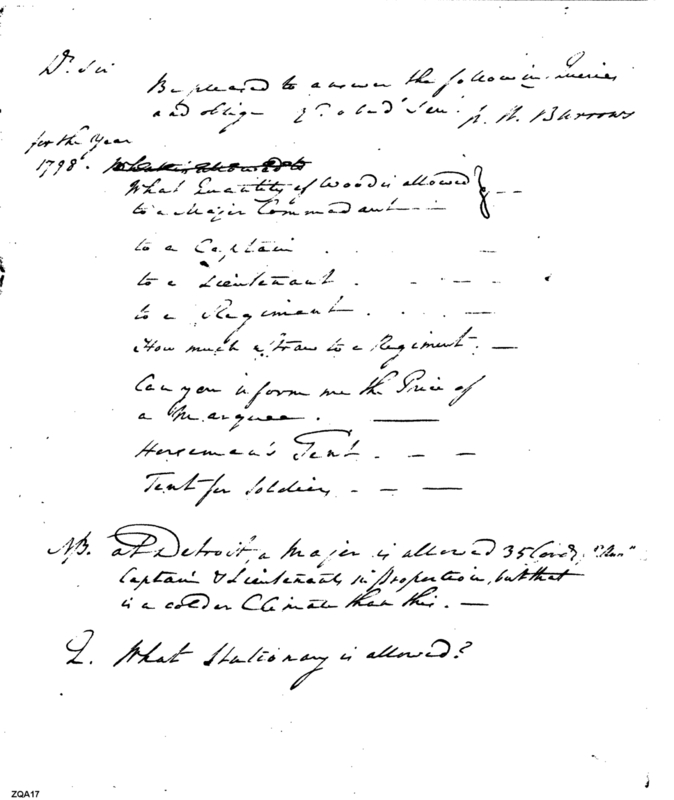 Dr. Sir
Be pleased to answer the following Queries
and oblige yr obedt Serv. W. W. Burrows
for the Year
1798.
What Quantity of Wood is allowed
to a Major Commadant
to a Captain
to a Lieutenant
to a Regiment
How much Straw to a Regiment. —
Can you inform me the Price of
a Marquee. —
Horseman's Tent. - — —
Tent for Soldiers - - —
NB. at Detroit, a Major is allowed 35 Cords
Captain & Lieutenants in proportion, but that
is a colder Climate than this. —
Q. What Stationary is allowed?
ZQA17